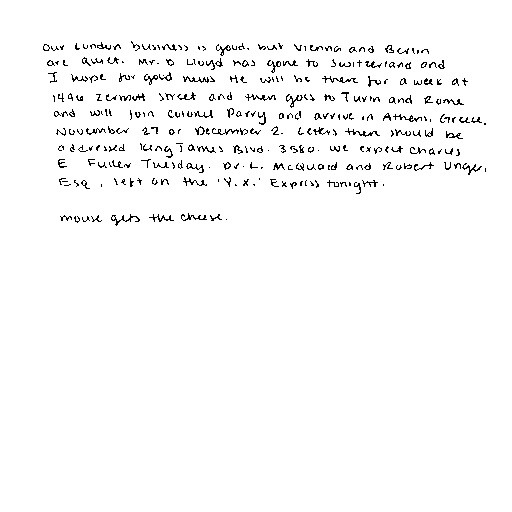 Our London business is good, but Vienna and Berlin
are quiet. Mr. D Lloyd has gone to Switzerland and
I hope for good news He will be there for a week at
1496 Zermott Street and then goes to Turin and Rome
and will join Colonel Parry and arrive in Athens, Greece,
November 27 or December 2. Letters then should be
addressed King James Blvd. 3580. We expect Charles
E Fuller Tuesday. Dr. L. McQuaid and Robert Unger,
Esq., left on the 'Y.X.' Express tonight.
mouse gets the cheese.